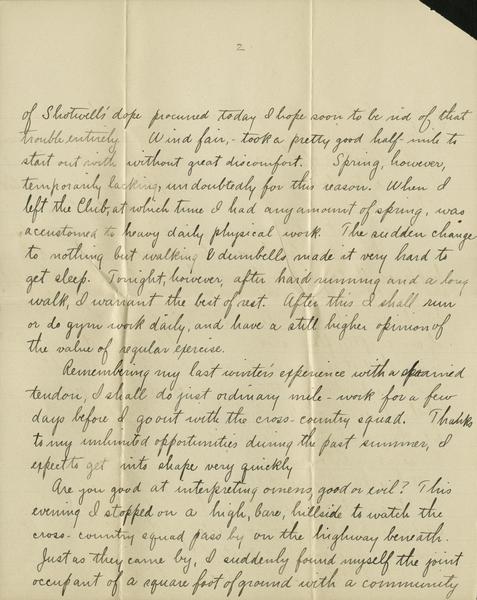 2
of Shotwell's dope procured today I hope soon to be rid of that
trouble entirely Wind fair, - took a pretty good half-mile to
start out with without great discomfort. Spring, however,
temporarily lacking, undoubtedly for this reason. When I
left the Club, at which time I had any amount of spring, was
accustomed to heavy daily physical work. The sudden change
to nothing but walking & dumbells made it very hard to
get sleep. Tonight, however, after hard running and a long
walk, I warrant the best of rest. After this I shall run
or do gym work daily, and have a still higher opinion of
the value of regular exercise.
Remembering my last winter's experience with a sprained
tendon, I shall do just ordinary mile-work for a few
days before I go out with the cross-country squad. Thanks
to my unlimited opportunities during the past summer, I
expect to get into shape very quickly
Are you good at interpreting omens, good or evil? This
evening I stopped on a high, bare, hillside to watch the
cross-country squad pass by on the highway beneath.
Just as they came by, I suddenly found myself the joint
occupant of a square foot of ground with a community